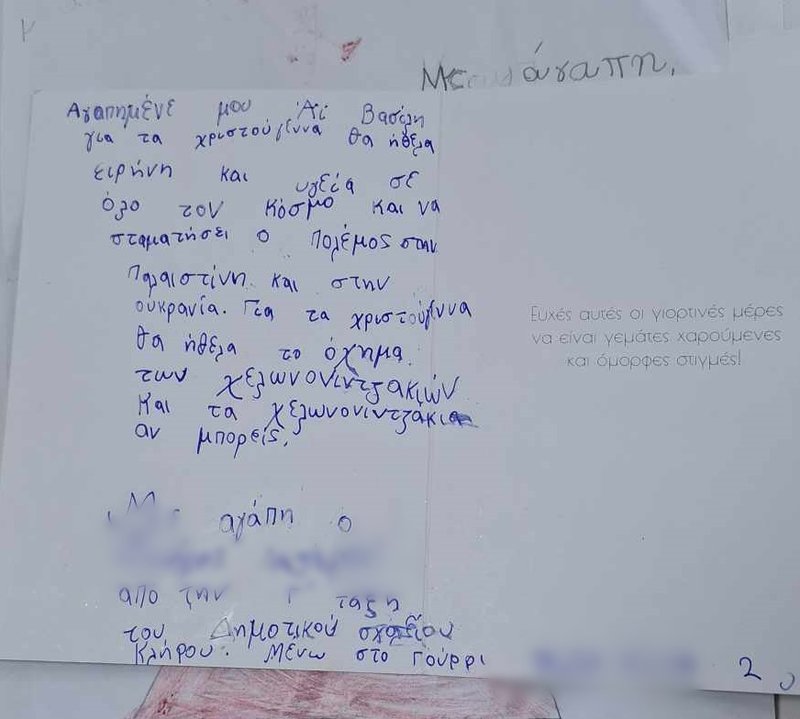 Με αγάπη.
Αγαπημένε μου Αϊ Βασίλη
για τα χριστούγιεννα θα ήθελα
ειρήνη και υγεία σε
όλο τον κόσμο και να
σταματήσει ο πολέμος στην
Παλαιστίνη και στην
ουκρανία. Για τα χριστούγιεννα
θα ήθελα το όχημα
των χελωνονιντζακιών
και τα χελωνονιντζάκια
αν μπορείς.
Με αγάπη ο
απο την Γ ταξη
του Δημοτικού σχολείου
Κλήρου. Μένω στο Γούρρι
2
Ευχές αυτές οι γιορτινές μέρες
να είναι γεμάτες χαρούμενες
και όμορφες στιγμές!